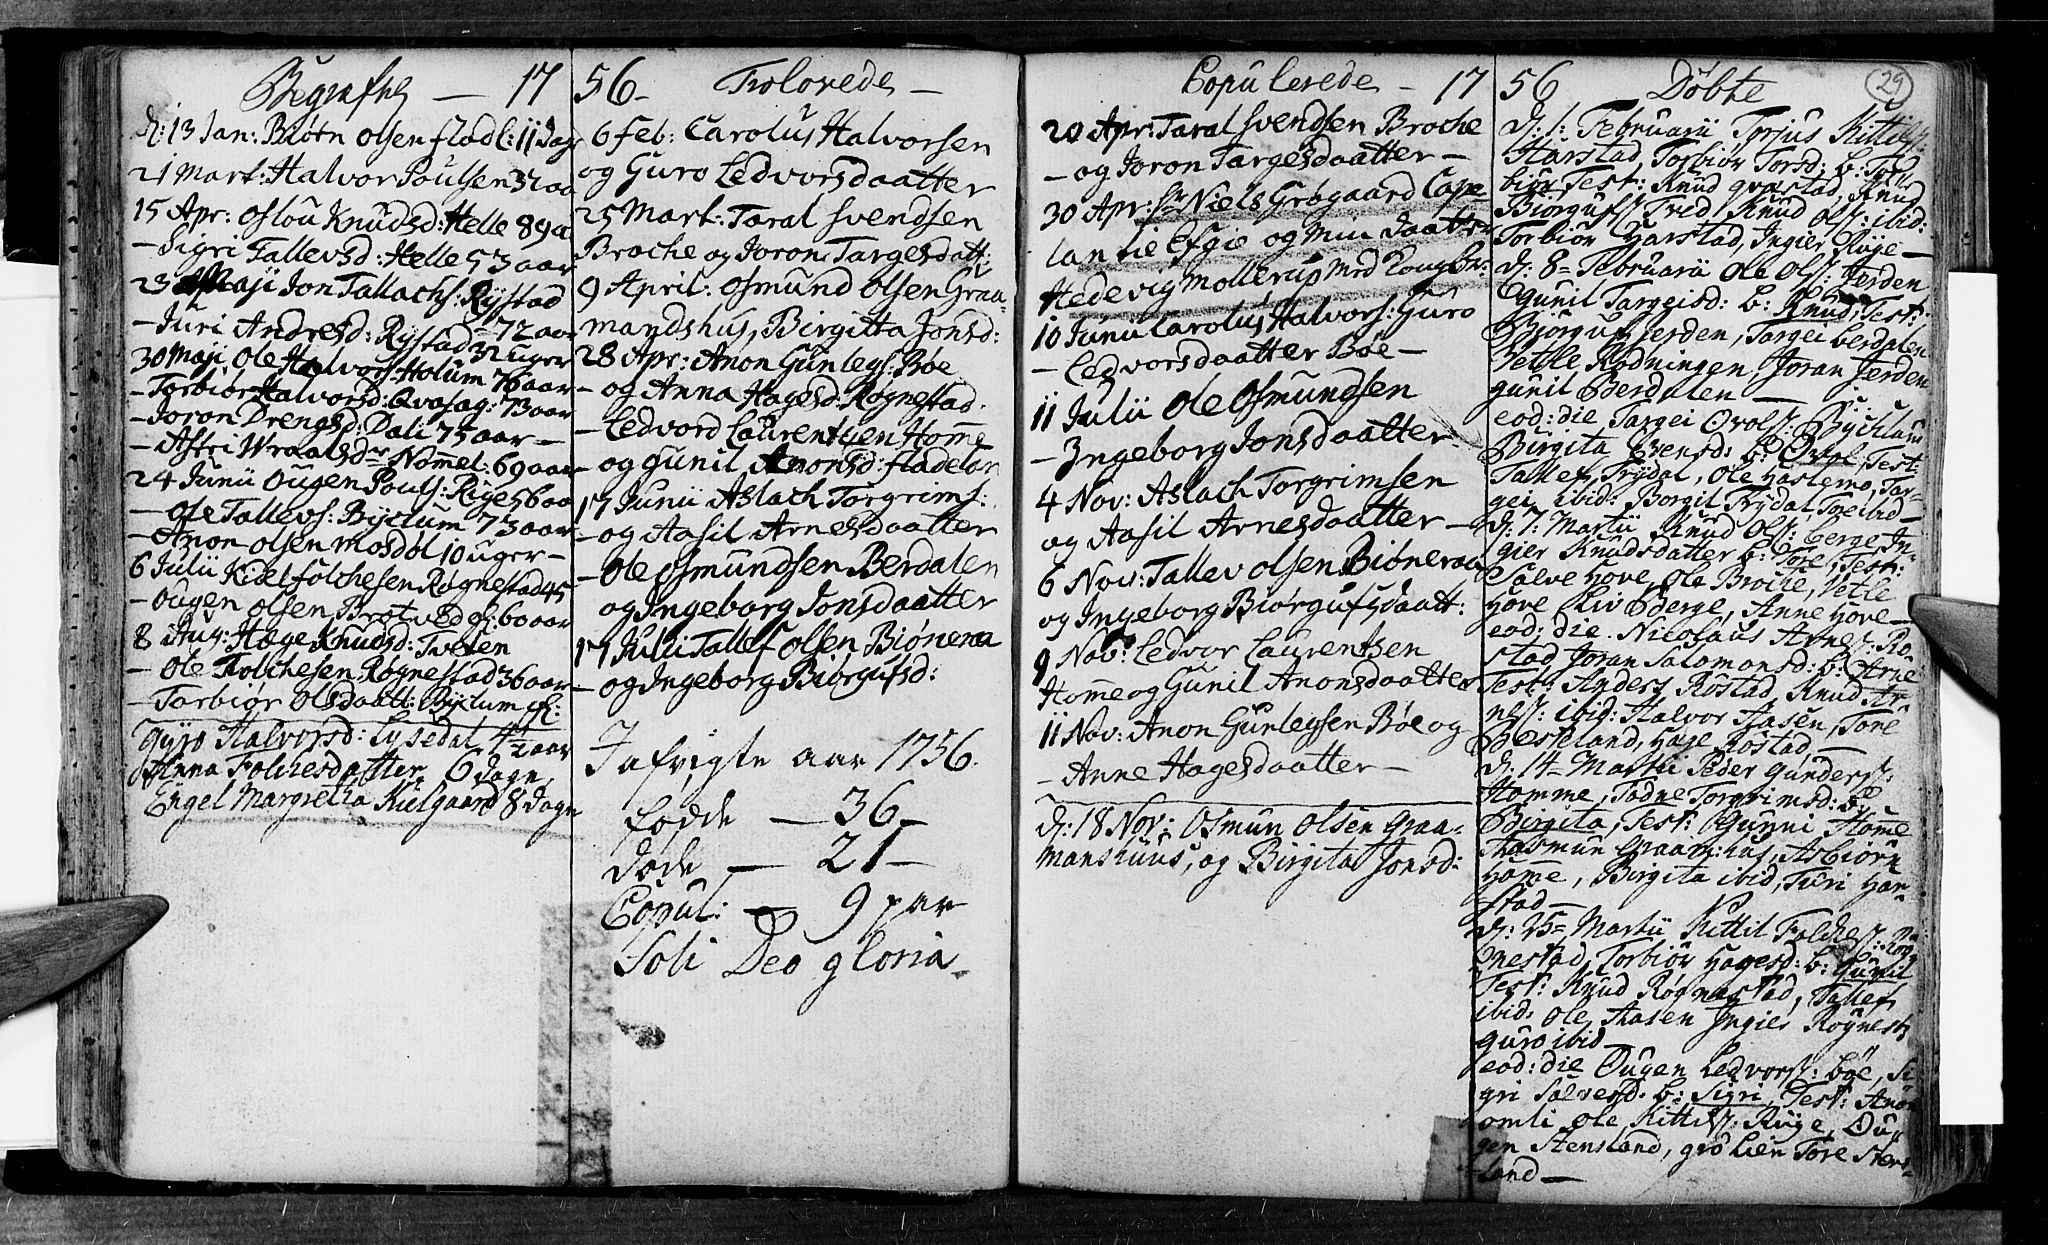 Begrafne — 17
d: 13 Jan: Biørn Olsen flad l: 11 Dage
21 Mart: Halvor Poulsen 32 aa
15 Apr: Oslou Knudsd: Helle 89 a
— Sigri Tallevsd: Helle 53 aar
23 Maji Jon Tallachs: Rystad
— Juri Andresd: Rystad 72 aar
30 Maji Ole Halvors: Holum 32 uger
— Torbiør Halvorsd: 76 aar
— Joron Drengsd: Dali 75 aar —
— Astri Wraalsdr Nomel: 69 aar
24 Junii Ougen Pouls: Rige 56 aa
— Ole Tallevs: Byclum 73 aar
— Anon Olsen Mosdøl 10 uger —
6 Julii Kiel folchesen Rognestad 45
— Ougen Olsen Brotved 60 aar
8 Aug: Hæge Knudsd: Tveten
— Ole Folchesen Rognestad 36 aar
— Torbiør Olsdaatt: Byclum
Gyro Halvorsd: Lysedal 4½ aar
Anna Folchesdatter 6 dage
Engel Margretha Kielgaard 8 dage
56 — Trolovede —
6 Feb: Carolus Halvorsen
og Guro Ledvorsdaatter
25 Mart: Taral Svendsen
Broche og Joron Targesdatt:
9 April: Osmund Olsen Graa-
mandshus, Birgitta Jonsd:
28 Apr: Anon Gunleys: Bøe
— og Anna Hagesd: Rognestad.
— Ledvord Laurentsen Home
— og Gunil Anonsd: fladeland
17 Junii Aslach Torgrims:
— og Aasil Arnesdaatter
— Ole Osmundsen Berdalen
og Ingeborg Jonsdaatter
17 Julii Tallef Olsen Biøneraa
— og Ingeborg Biørgufsd:
I afvigte aar 1756.
fødde — 36 —
døde — 21 —
Copul: — 9 par
Soli Deo gloria.
Copulerede — 17
20 Apr: Taral Svendsen Broche
— og Joron Targesdaatter —
30 Apr: Hr Niels Grøgaard Cape
lan til Efgie og Min Daatter
Hedevig Mollerup Med Kong. br:
10 Junii Carolus Halvors: Guro
— Ledvorsdaatter Bøe —
11 Julii Ole Osmundsen
— Ingeborg Jonsdaatter —
4 Nov: Aslach Torgrimsen
og Aasil Arnesdaatter —
6 Nov: Tallev Olsen Biøneraa
og Ingeborg Biørgufsdaatt:
9 Nov: Ledvor Laurentsen
Home og Gunil Anonsdaatter
11 Nov: Anon Gunleysen Bøe og
— Anne Hagesdaatter —
d: 18 Nov: Osmun Olsen Graa-
manshuus, og Birgita Jonsd:
56 Døbte
29
d: 1: Februarii Torjus Kittils:
Harstad, Torbiør Torsd: b: Tor
biør Test: Knud Qvastad, Knud
Biørgufs: Tved, Knud Ols: ibid:
Torbiør Harstad, Ingier Ryge —
d: 8 = Februarii Ole Ols: Jerden
Gunil Targeisd: b: Knud, Test:
Biørguf Jerden, Targei berdalen
Vetle Rodningen, Joran Jerden
gunil Berdalen —
eod: die, Targei Ovols: Byclum
Birgita Evensd: b: Ovol, Test:
Tallef Frydal, Ole Haslemo, Tar-
gei ibid: Borgil Frydal, Tore ibid —
d: 7: Martii Knud Ols: berge In-
gier Knudsdatter b: Tore, Test:
Salve Hove, Ole Broche, Vetle
Hove Liv Berge, Anne Hove —
eod: die. Nicolaus Arnes: Ro-
stad Joran Salomonsd: b: Arne
Test: Anders Rostad, Knud Ar-
nes: ibid: Halvor Aasen, Tore
Besteland, Hage Rostad —
d: 14 = Martii Peder Gunders:
Homme, Todne Torgrimsd: b:
Birgita, Test: Gunni Home
Aasmun Graam:hus, Asbiørn
Home, Birgita ibid, Turi Har-
stad —
d: 25 = Martii Kittil Folches: Rog-
nestad, Torbiør Hagesd: b: Gunil
Test: Knud Rognestad, Tallef
ibid: Ole Aasen Ingier Rognest:
guro ibid —
eod: die Ougen Ledvors: bøe, Si-
gri Salvesd: b: Sigri, Test: Anon
omli Ole Kittils: Ryge, Ou-
gen Stensland, gro Lien Tore Stens-
land —